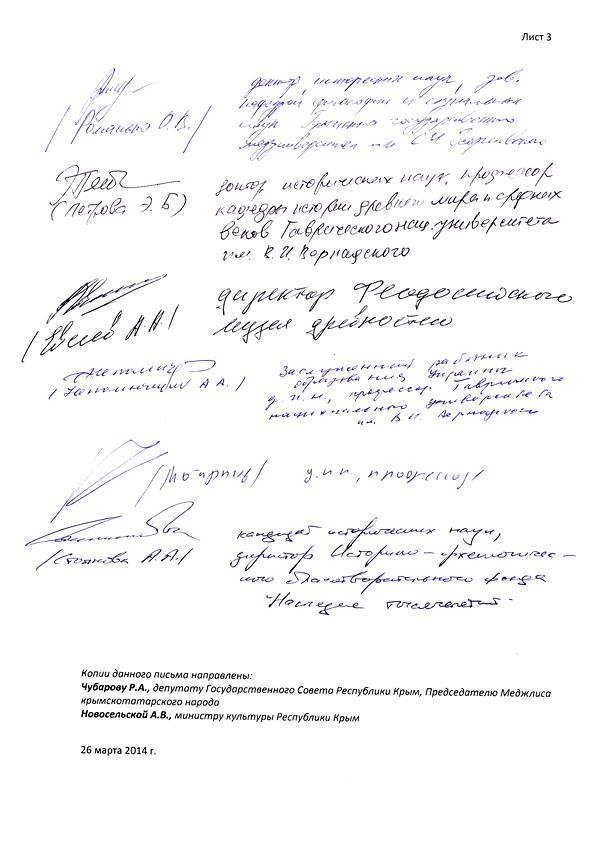 Лист 3
/Романько О.В./
доктор исторических наук, зав.
кафедрой философии и социальных
наук Крымского государственного
медуниверситета им. С.И. Георгиевского
(Петрова Э.Б)
доктор исторических наук, профессор
кафедры истории древнего мира и средних
веков Таврического нац. университета
им. В.И. Вернадского
/Евсеев А.А/
директор Феодосийского
музея древностей
/Непомнящий А.А./
Заслуженный работник
образования Украины
д.и.н., профессор Таврического
национального университета
им. В.И. Вернадского
д.и.н, профессор/
/Стоянова А.А/
кандидат исторических наук,
директор Историко-археологичес-
кого благотворительного фонда
"Наследие тысячелетий"
Копии данного письма направлены:
Чубарову Р.А., депутату Государственного Совета Республики Крым, Председателю Меджлиса
крымскотатарского народа
Новосельской А.В., министру культуры Республики Крым
26 марта 2014 г.